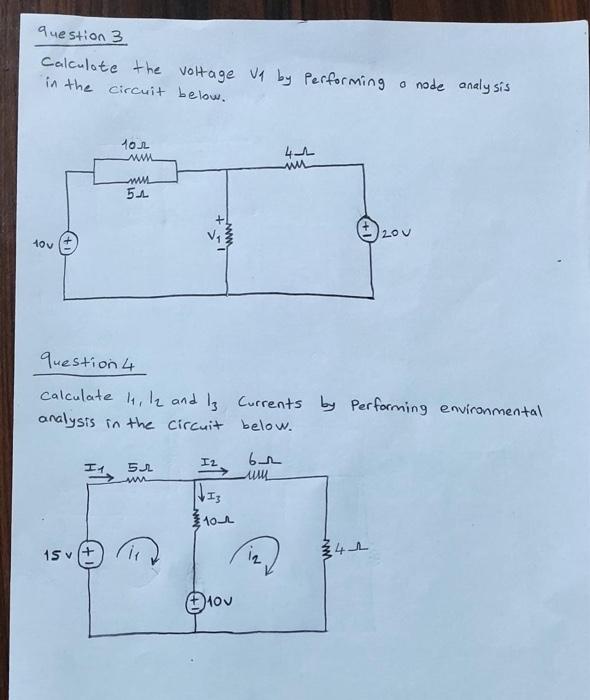 question 3
Calculate the voltage V1 by Performing a node analysis
in the circuit below.
10Ω
4Ω
5Ω
+
V1
-
10V
+
-
+
-
20V
question 4
Calculate I1, I2 and I3 Currents by Performing environmental
analysis in the circuit below.
I1
5Ω
I2
6Ω
I3
10Ω
15V
+
-
i1
i2
4Ω
+
-
10V